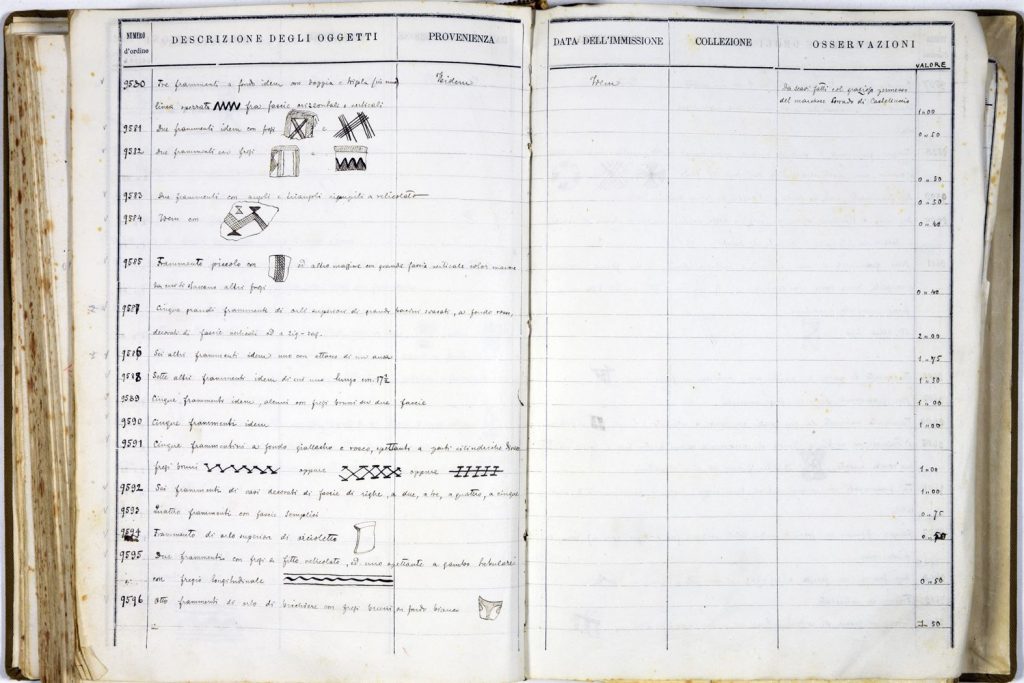 NUMERO d'ordine DESCRIZIONE DEGLI OGGETTI PROVENIENZA DATA DELL'IMMISSIONE COLLEZIONE OSSERVAZIONI VALORE
9580 Tre frammenti a fondo idem con doppia e tripla Ibidem Idem Da scavi fatti col grazioso permesso
linea fra fascie orizzontali e verticali del marchese Corrado di Castelluccio 1 00
9581 Due frammenti idem con fregi e 0 50
9582 Due frammenti con fregi e 0 50
9583 Due frammenti con angoli e triangoli riempiti a reticolato 0 50
9584 Idem con 0 40
9585 Frammento piccolo con ed altro maggiore con grande fascia verticale color marrone
da cui si staccano altri fregi 0 40
9587 Cinque grandi frammenti di orli superiori di grandi bacini svasati, a fondo rosso,
decorati di fascie verticali ed a zig-zag. 2 00
9586 Sei altri frammenti idem uno con attacco di un ansa 1 75
9588 Sette altri frammenti idem di cui uno lungo cm. 17½ 1 50
9589 Cinque frammenti idem, alcuni con fregi bruni su due faccie 1 00
9590 Cinque frammenti idem 1 00
9591 Cinque frammentini a fondo giallastro e rosso, spettanti a parti cilindriche
fregi bruni oppure oppure 1 00
9592 Sei frammenti di vasi decorati di fascie di righe, a due, a tre, a quattro, a cinque 1 00
9593 Quattro frammenti con fascie semplici 0 75
9594 Frammento di orlo superiore di 0
9595 Due frammenti con fregi a fitto reticolato, ed uno spettante a gambo tubulare
con fregio longitudinale 0 50
9596 Otto frammenti di orlo di bicchiere con fregi bruni su fondo bianco
1 50